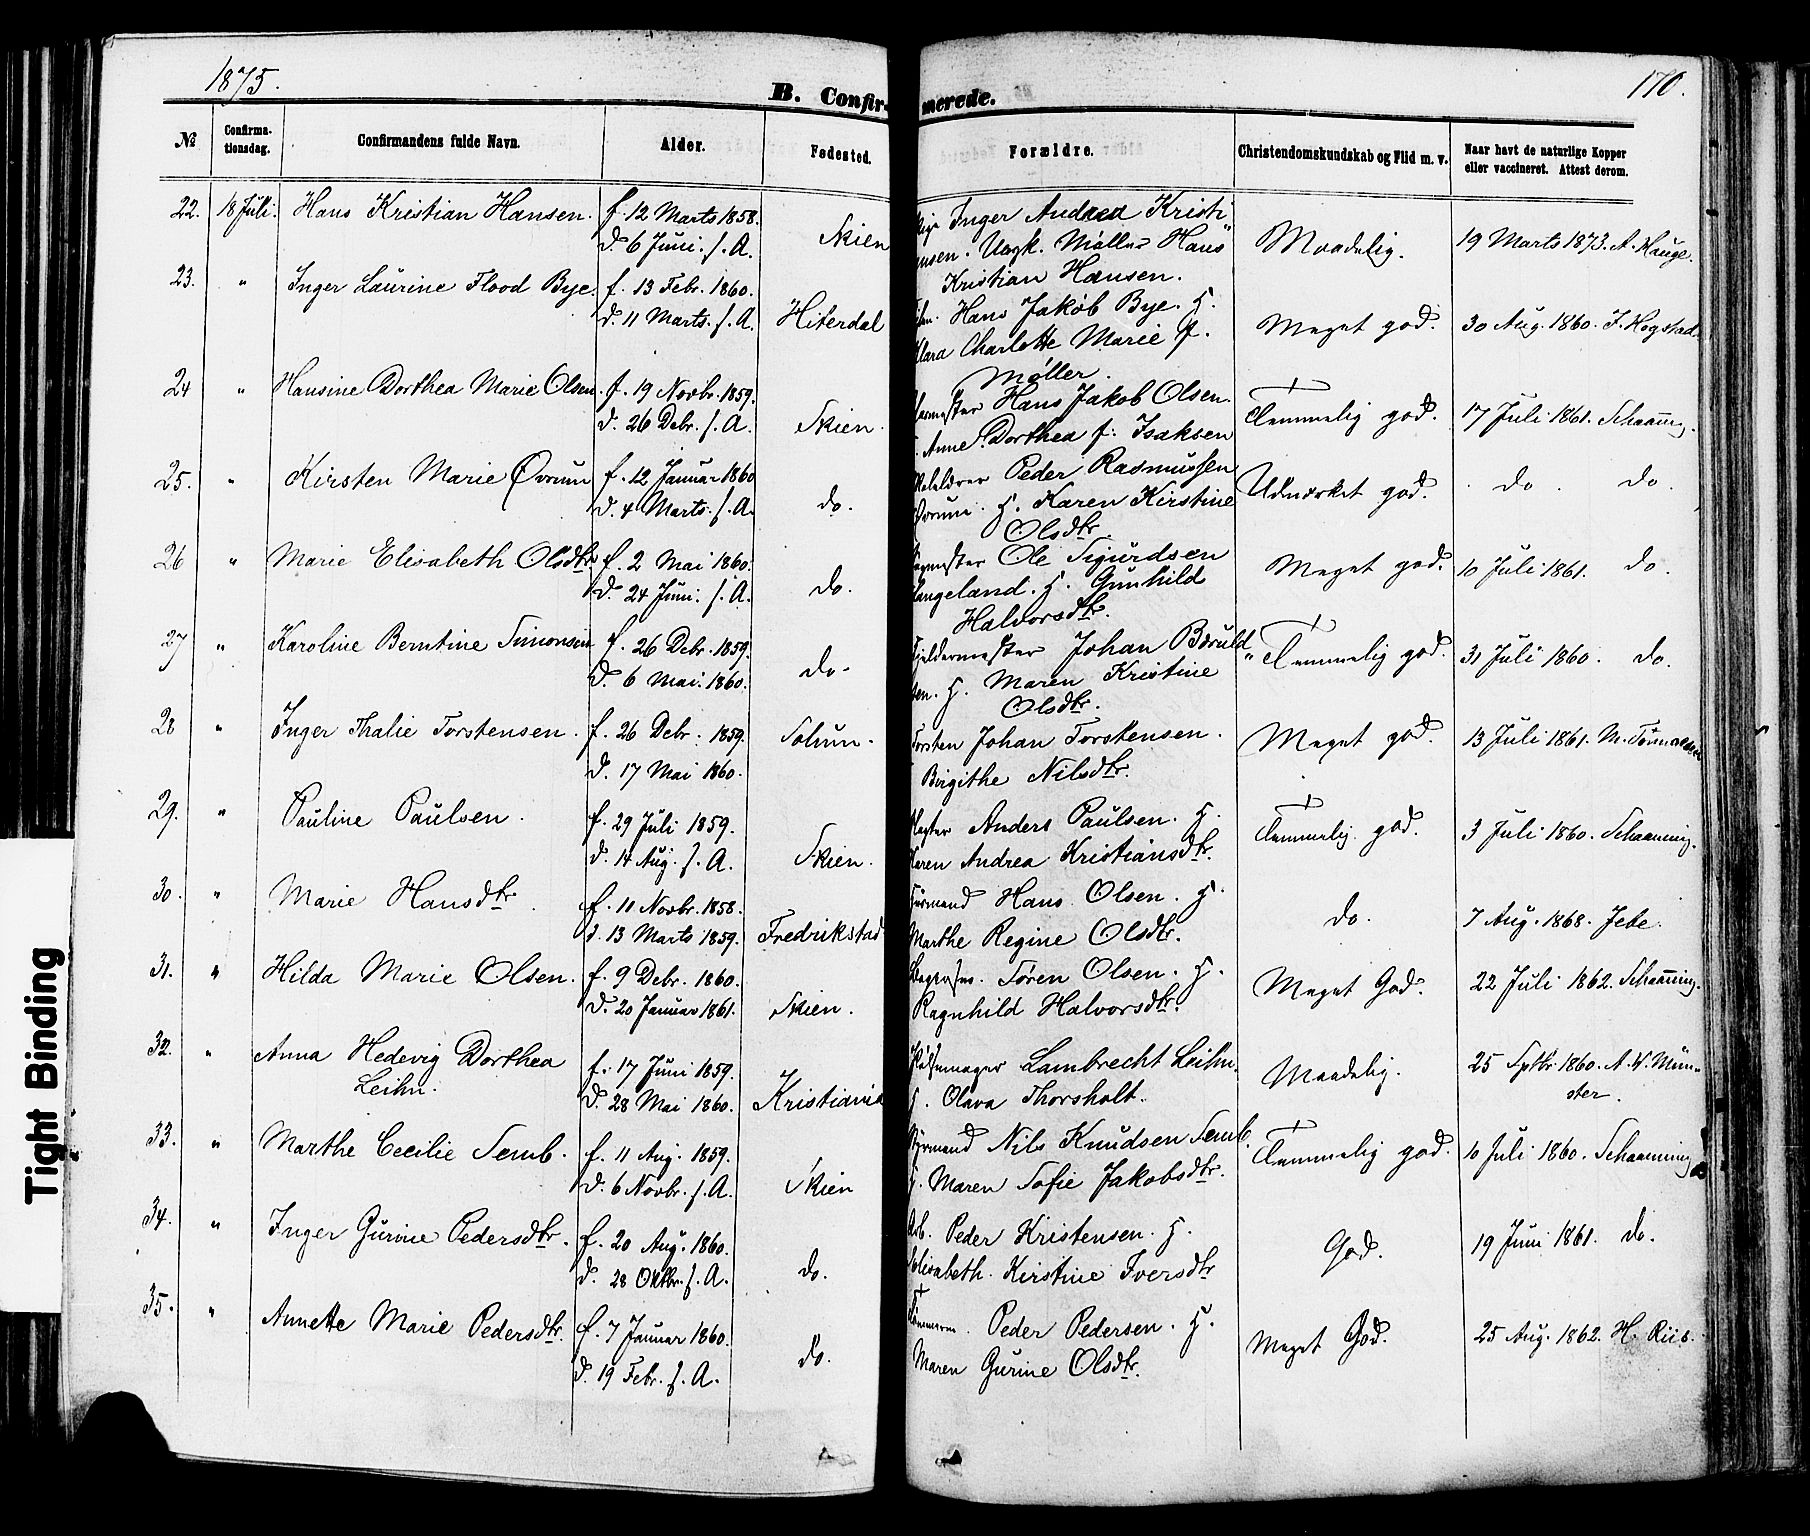 1875.
B. Confirmerede.
170.
№ Confirmationsdag. Confirmandens fulde Navn. Alder. Fødested. Forældre. Christendomskundskab og Flid m. v. Naar havt de naturlige Kopper eller vaccineret. Attest derom.
22. 18 Juli. Hans Kristian Hansen. f. 12 Marts 1858. Inger Andrea Kristi
d. 6 Juni. s. A. Skien Ungk. Møller Hans Maadelig. 19 Marts 1873. A. Hauge.
Kristian Hansen.
23. " Inger Laurine Flood Bye. f. 13 Febr. 1860. Hans Jakob Bye. H.
d. 11 Marts. s. A. Hiterdal Klara Charlotte Marie f. Meget god. 30 Aug. 1860. J. Hogstad.
Møller.
24 " Hansine Dorthea Marie Olsen. f. 19 Novbr. 1859. Hans Jakob Olsen.
d. 26 Debr. s. A. Skien. Anne Dorthea f. Isaksen Temmelig god. 17 Juli 1861. Schaaning.
25. " Kirsten Marie Øvrum f. 12 Januar 1860 Peder Rasmussen
d. 4 Marts. s. A. do. Øvrum. H. Karen Kirstine Udmærket god. do. do.
Olsdtr.
26 " Marie Elisabeth Olsdtr. f. 2 Mai 1860. Ole Sigurdsen
d. 24 Juni. s. A. do. Haugeland. H. Gunhild Meget god. 10 Juli 1861. do.
Halvorsdtr.
27 " Karoline Berntine Simonsen f. 26 Debr. 1859. Johan Børuld"
d. 6 Mai. 1860. do. sen. H. Maren Kristine Temmelig god. 31 Juli 1860. do.
Olsdtr.
28 " Inger Thalie Torstensen. f. 26 Debr. 1859. Solum. Torsten Johan Torstensen.
d. 17 Mai 1860. Birgithe Nilsdtr. Meget god. 13 Juli 1861.
29. " Pauline Paulsen. f. 29 Juli 1859. Anders Paulsen. H.
d. 14 Aug. s. A. Skien. Karen Andrea Kristiansdtr. Temmelig god. 3 Juli 1860. Schaaning.
30. " Marie Hansdtr. f. 11 Novbr. 1858. Hans Olsen. H.
d. 13 Marts 1859. Fredrikstad Marthe Regine Olsdtr. do. 7 Aug. 1868. Jebe.
31. " Hilda Marie Olsen. f. 9 Debr. 1860. Søren Olsen. H.
d. 20 Januar 1861. Skien. Ragnhild Halvorsdtr. Meget God. 22 Juli 1862. Schaaning.
32. " Anna Hedevig Dorthea f. 17 Juni 1859. Pølsemager Lambrecht Leihn.
Leihn. d. 28 Mai 1860. Kristiania H. Olava Thorsholt. Maadelig. 25 Sptbr. 1860. A. W. Mün-
ster.
33. " Marthe Cecilie Semb. f. 11 Aug. 1859. Styrmand Nils Knudsen Semb.
d. 6 Novbr. s. A. Skien H. Maren Sofie Jakobsdtr. Temmelig god. 10 Juli 1860. Schaaning
34. " Inger Gurine Pedersdtr. f. 20 Aug. 1860. Arb. Peder Kristensen. H.
d. 28 Oktbr. s. A. do. Elisabeth Kirstine Iversdtr God. 19 Juni 1861. do.
35. " Annette Marie Pedersdtr. f. 7 Januar 1860. Tømmerm. Peder Pedersen. H.
d. 19 Febr. s. A. do. Maren Gurine Olsdtr. Meget God. 25 Aug. 1862. H. Riis.
Tight Binding